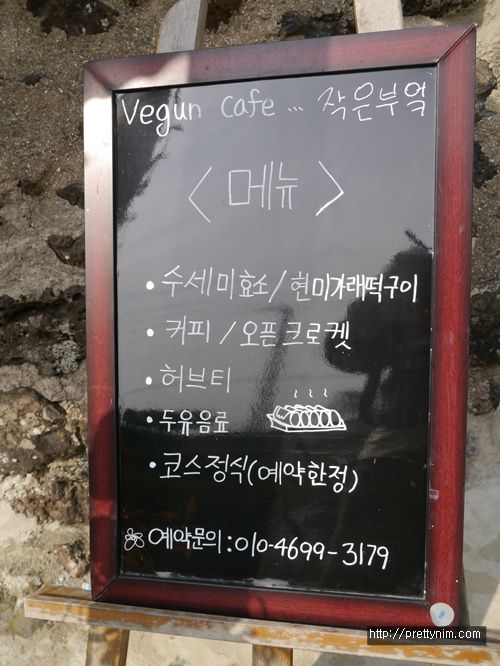 Vegun cafe ... 작은부엌
< 메뉴 >
• 수세미효소/현미가래떡구이
• 커피 / 오픈크로켓
• 허브티
• 두유음료
• 코스정식(예약한정)
예약문의:010-4699-3179
http://prettynim.com